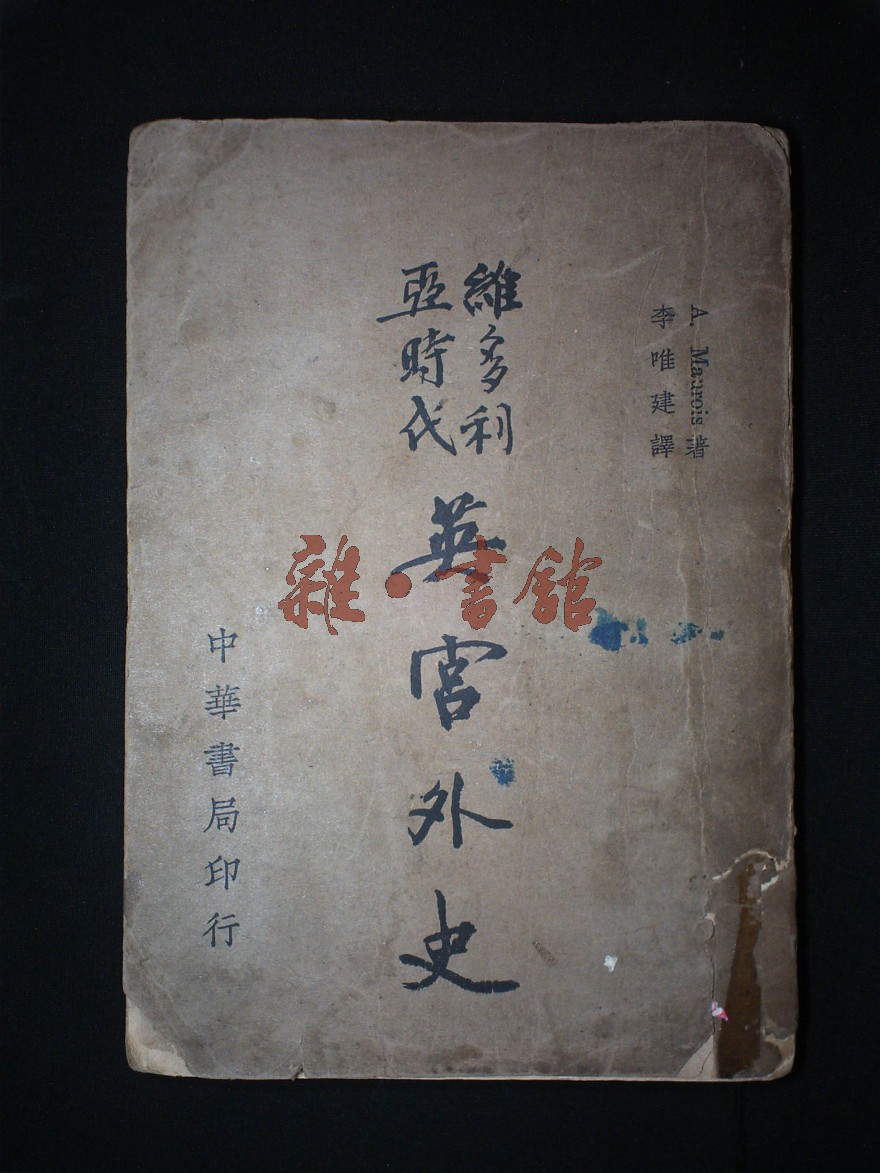 A. Maurois 著
李唯建譯
維多利
亞時代
英宮外史
中華書局印行
雜·書館